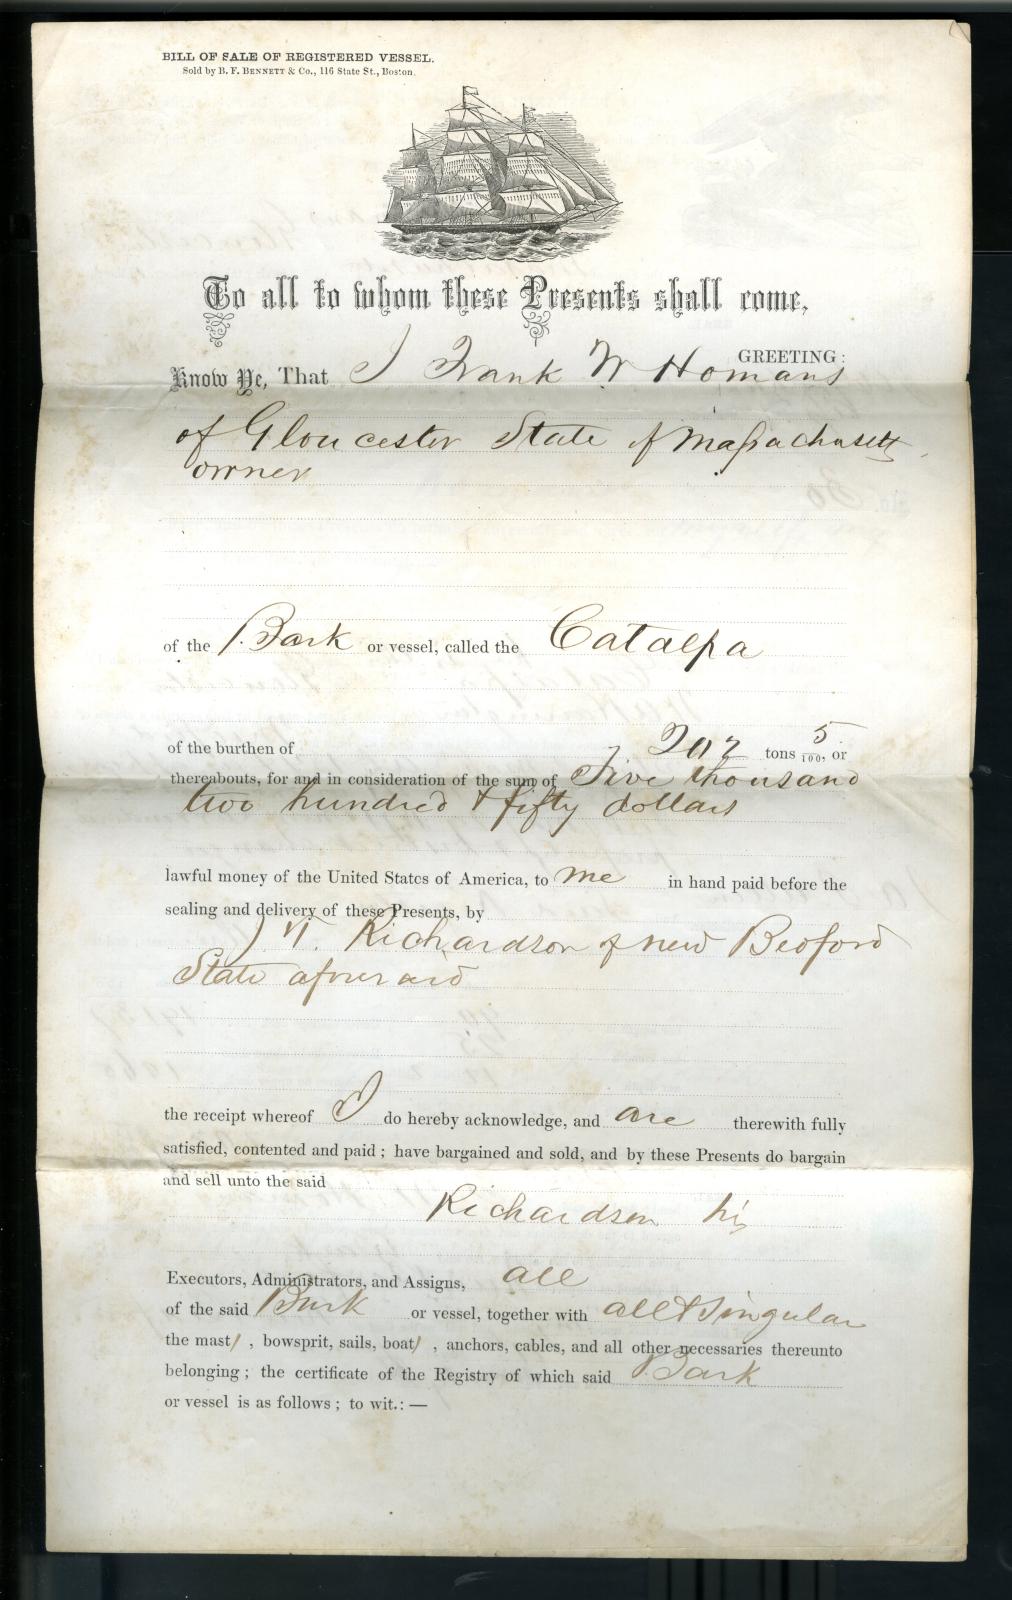 BILL OF SALE OF REGISTERED VESSEL.
Sold by B. F. BENNETT & Co., 116 State St., Boston.
To all to whom these Presents shall come,
GREETING:
Know Ye, That I Frank W Homans
of Gloucester State of Massachusetts
owner
of the Bark or vessel, called the Catalpa
of the burthen of 202 tons 5/100, or
thereabouts, for and in consideration of the sum of Five thousand
two hundred & fifty dollars
lawful money of the United States of America, to me in hand paid before the
sealing and delivery of these Presents, by
J T. Richardson of new Bedford
State aforesaid
the receipt whereof I do hereby acknowledge, and are therewith fully
satisfied, contented and paid; have bargained and sold, and by these Presents do bargain
and sell unto the said
Richardson his
Executors, Administrators, and Assigns, all
of the said Bark or vessel, together with all & Singular
the mast/ , bowsprit, sails, boat/ , anchors, cables, and all other necessaries thereunto
belonging; the certificate of the Registry of which said Bark
or vessel is as follows; to wit.:—